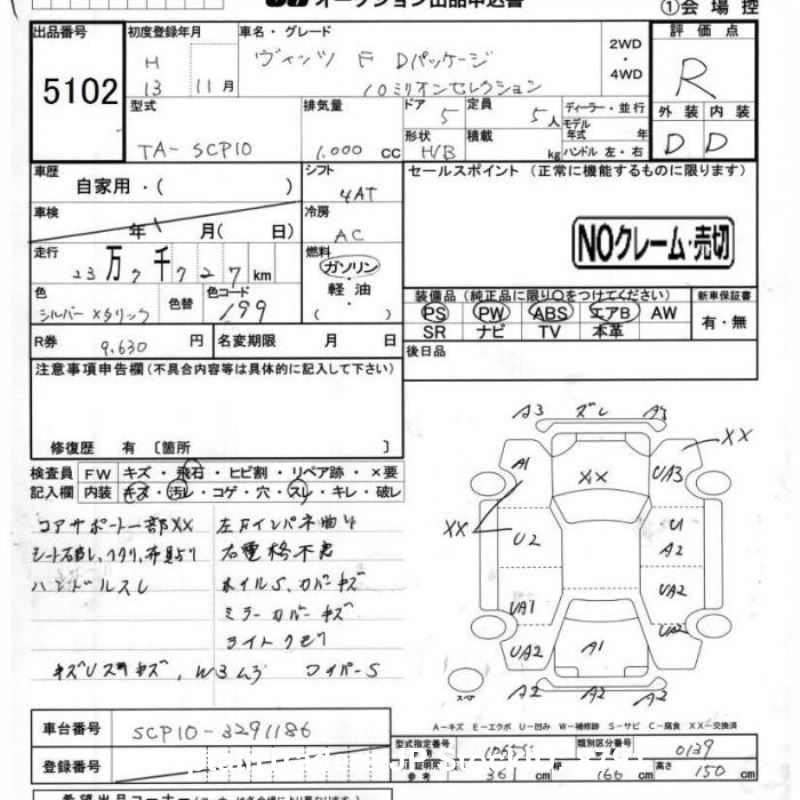 オークション出品申込書
①会場控
出品番号 5102
初度登録年月 H 13 11月
車名・グレード ヴィッツ F Dパッケージ
10ミリオンセレクション
2WD・4WD
評価点 R
外装 内装
D D
型式 TA-SCP10
排気量 1,000 cc
ドア 5
定員 5人
ディーラー・並行
モデル年式 年
形状 H/B
積載 kg
ハンドル 左・右
車歴 自家用・( )
シフト 4AT
セールスポイント (正常に機能するものに限ります)
車検 年 月( 日)
冷房 AC
NOクレーム・売切
走行 23万7千727km
燃料 ガソリン
軽・油
( )
色 シルバーメタリック
色替
色コード 199
装備品 (純正品に限り○をつけてください)
新車保証書
PS PW ABS エアB AW
有・無
SR ナビ TV 本革
R券 9,630 円
名変期限 月 日
後日品
注意事項申告欄(不具合内容等は具体的に記入して下さい)
修復歴 有 〔箇所 〕
検査員 FW キズ・飛石・ヒビ割・リペア跡・×要
記入欄 内装 キズ・汚レ・コゲ・穴・スレ・キレ・破レ
コアサポート一部XX 左Fインパネ曲り
ハンドルスレ ホイルS、カバーキズ
ミラーカバーキズ
ライトクモリ
ワイパーS
A3 ズレ A3
XX
A1 XX UA3
XX U2 U1
A2
UA1 UA2
UA2 A1 UA2
A2 A2 A2
A-キズ E-エクボ U-凹み W-補修跡 S-サビ C-腐食 XX-交換済
車台番号 SCP10-3291186
型式指定番号
類別区分番号 0139
登録番号
参考 361 cm 166 cm 高さ 150 cm
希望出品コーナー